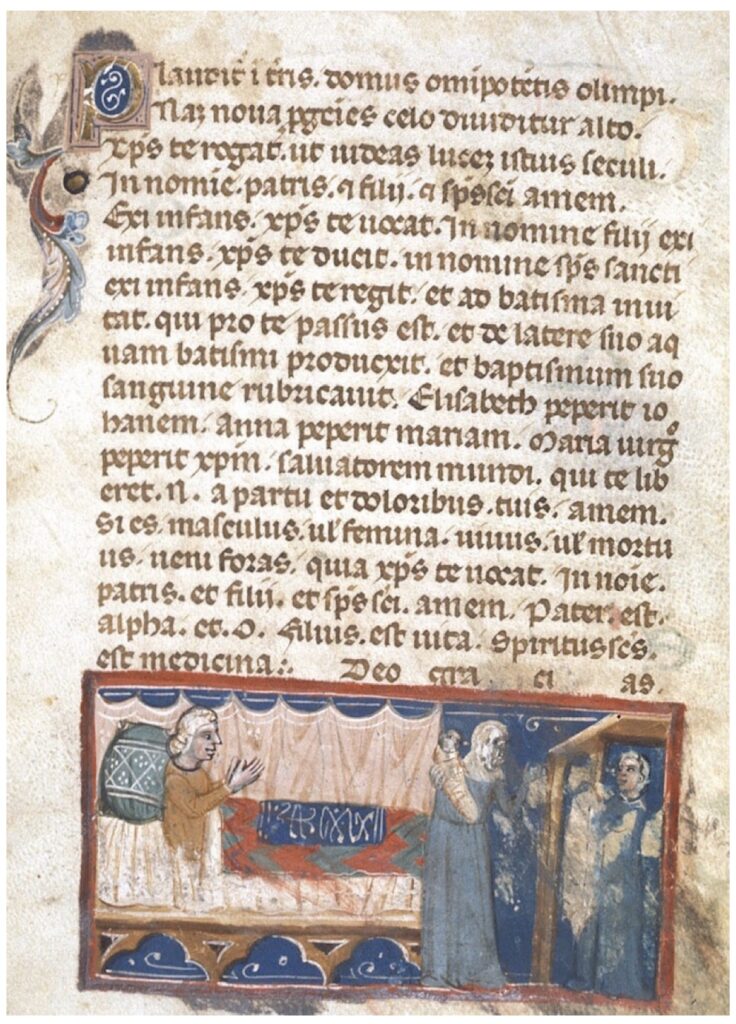 Plaudit i tris. domus omipotētis olimpi.
Naz noua pgeies celo diuiditur alto.
xp̄s te rogat. ut uideas lucez istius seculi.
In nomīe. patris. ⁊ filii. ⁊ sp̄s sci amem.
Exi infans. xp̄s te uocat. In nomine filij exi
infans. xp̄s te ducit. in nomine sp̄s sancti
exi infans. xp̄s te regit. et ad batisma inui
tat. qui pro te passus est. et de latere suo aq
uam batismi producxit. et baptismum suo
sanguine rubricauit. Elisabeth peperit io
hanem. anna peperit mariam. Maria uirg̊
peperit xp̄m. saluatorem mundi. qui te lib
eret. N. a partu et doloribus. tuis. amem.
Si es. masculus. uł femina. uiuus. uł mortu
us. ueni foras. quia xp̄s te uocat. In noīe.
patris. et filii. et sp̄s sci. amem. Pater. est.
alpha. et. O. Filius. est uita. Spiritus sc̄s.
est medicina:. Deo gra ci as.